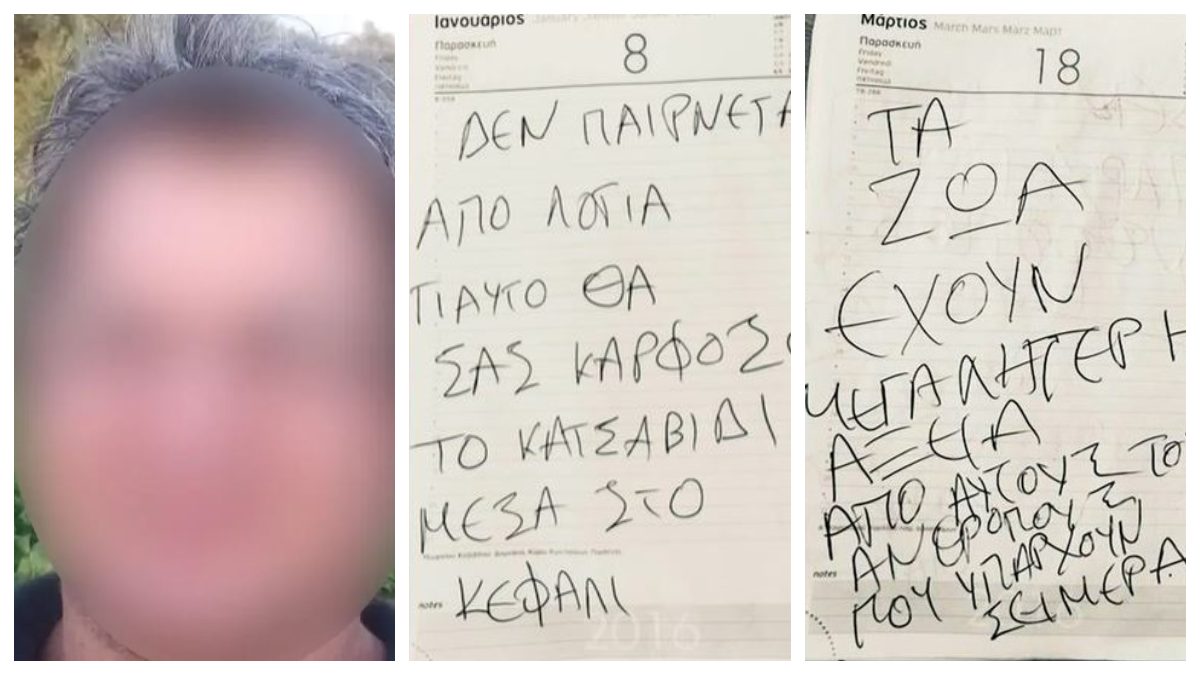 Ιανουάριος
Παρασκευή
Friday
Vendredi
Freitag
8
ΔΕΝ ΠΑΙΡΝΕΤΑ
ΑΠΟ ΛΟΓΙΑ
ΓΙΑΥΤΟ ΘΑ
ΣΑΣ ΚΑΡΦΟΣ
ΤΟ ΚΑΤΣΑΒΙΔΙ
ΜΕΣΑ ΣΤΟ
notes ΚΕΦΑΛΙ
2016
Μάρτιος March Mars Marz Март
Παρασκευή
Friday
Vendredi
Freitag
18
ΤΑ
ΖΩΑ
ΕΧΟΥΝ
ΜΕΓΑΛΗΤΕΡΗ
ΑΞΕΙΑ
ΑΠΟ ΑΥΤΟΥΣ ΤΟ
ΑΝΘΡΟΠΟΥΣ
notes ΠΟΥ ΥΠΑΡΧΟΥΝ
ΣΕΙΜΕΡΑ